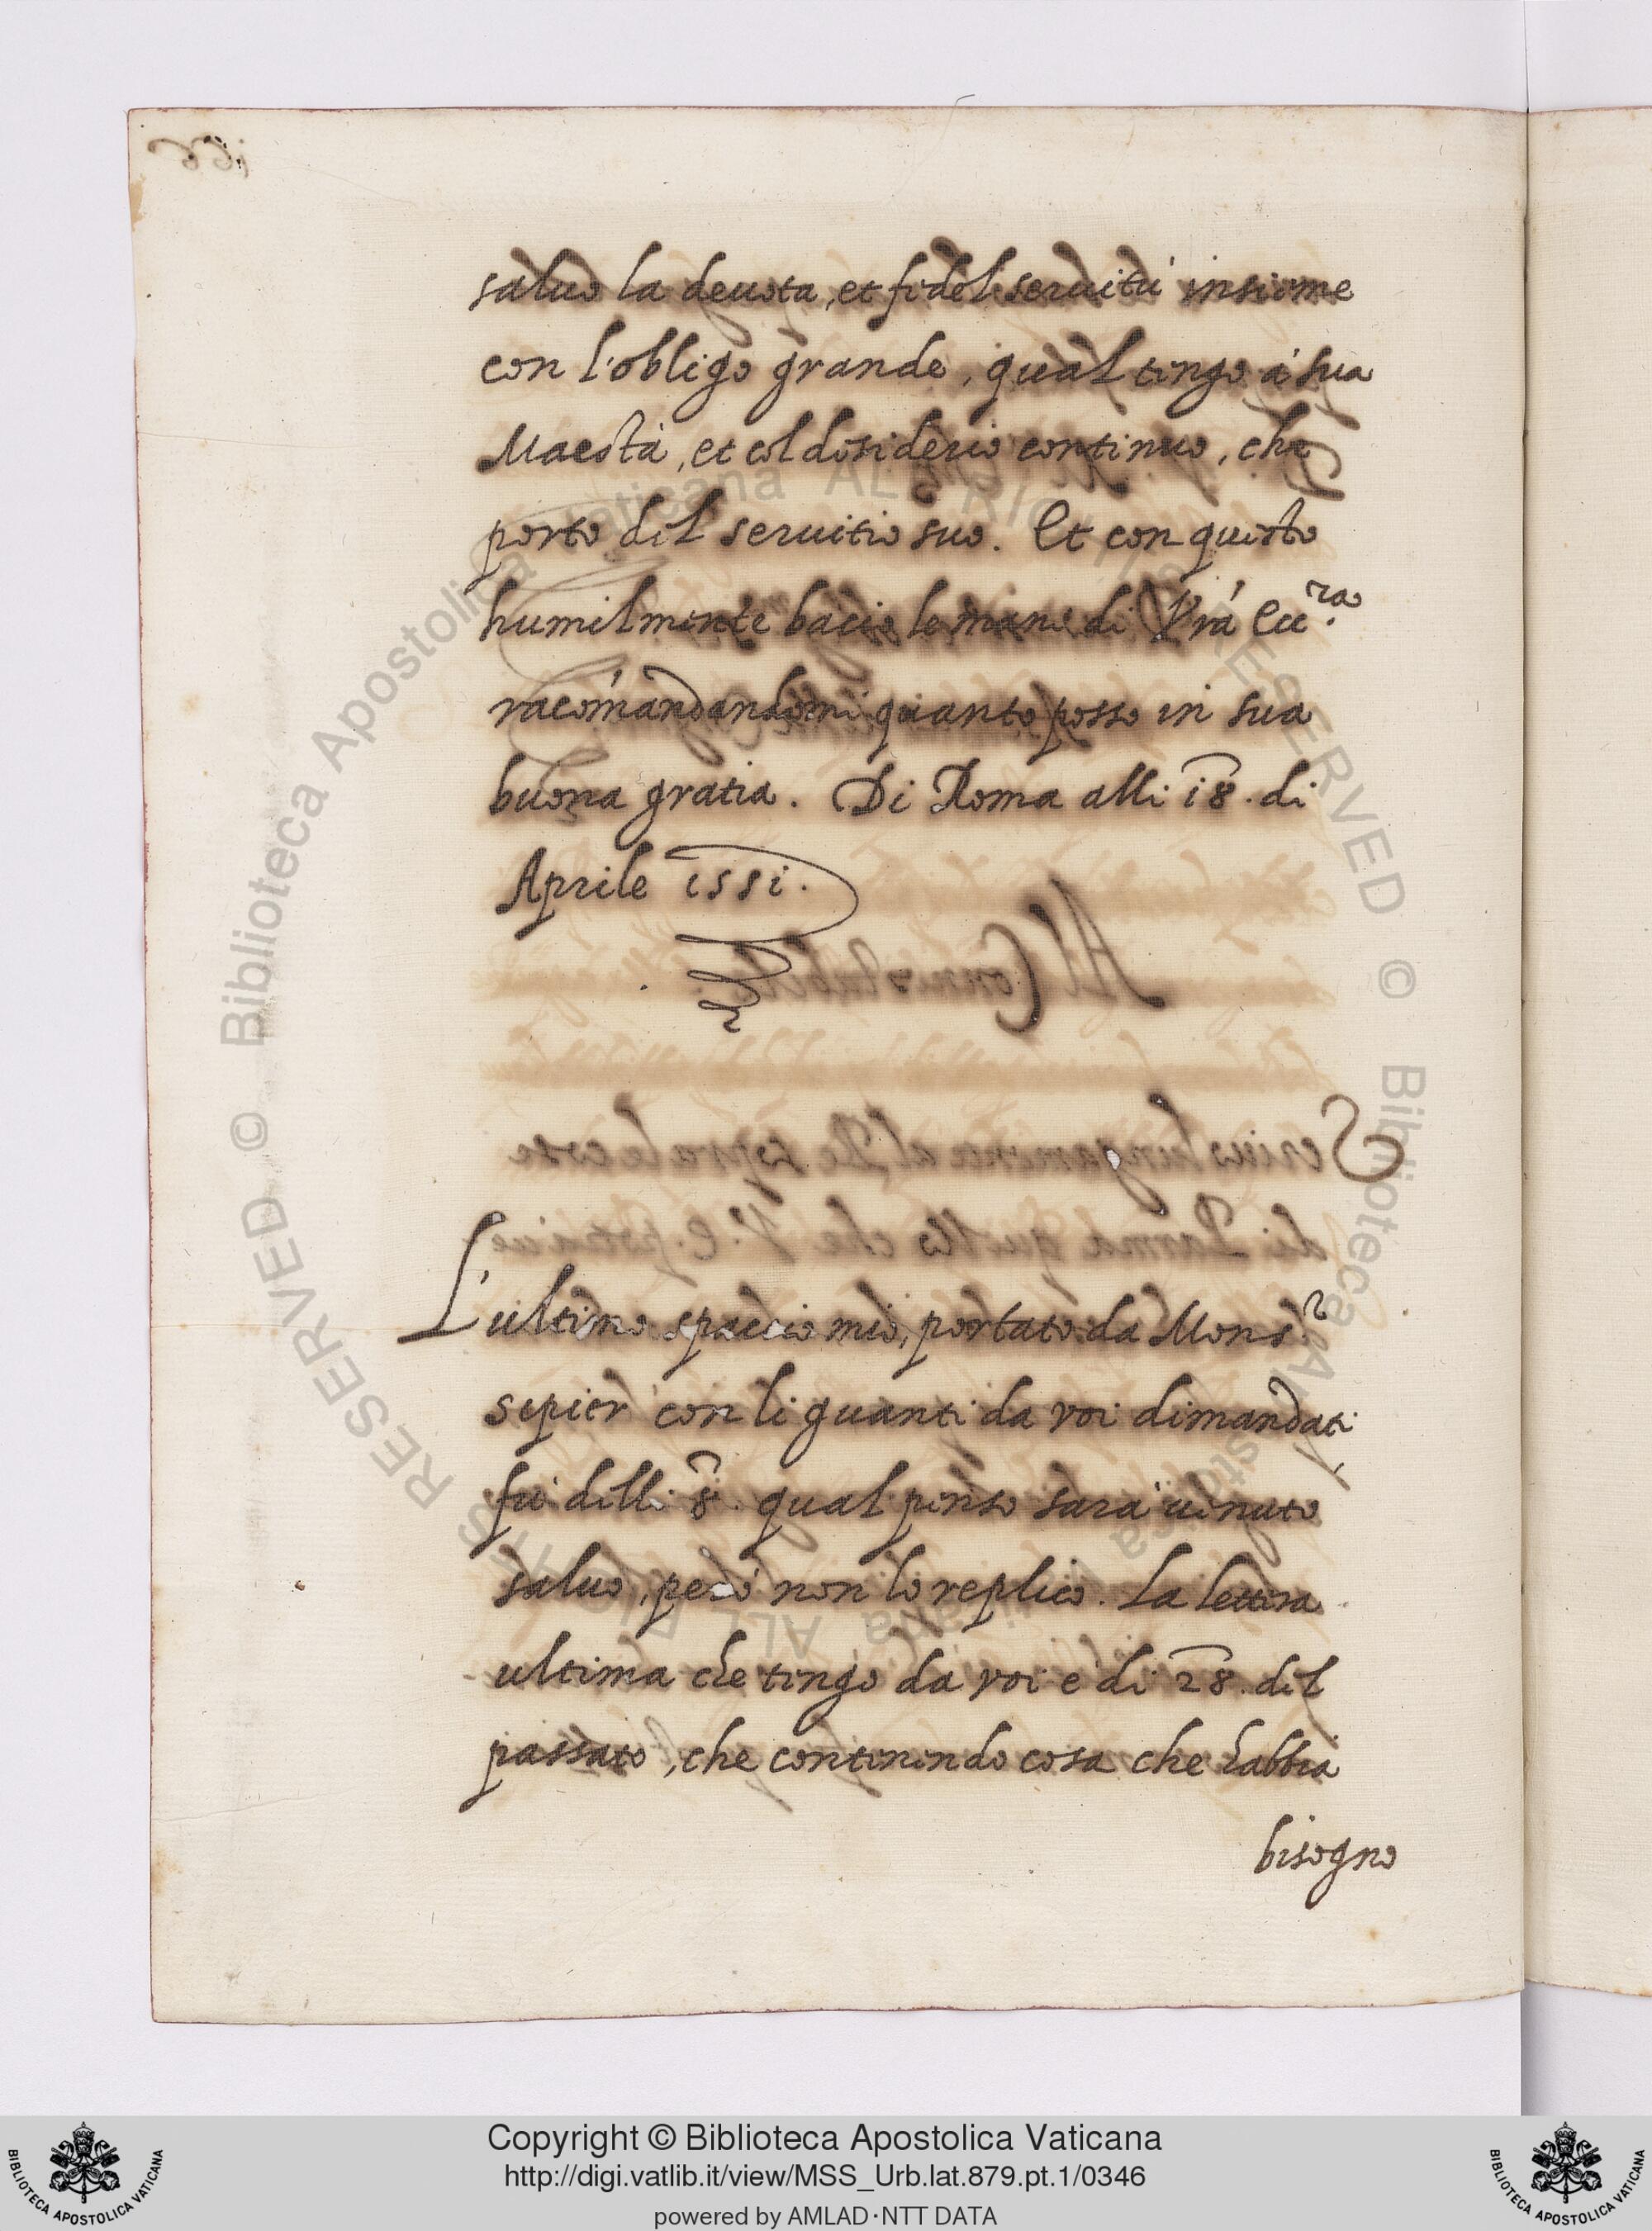 saluo la deuota, et fidel seruitù insieme
con l'obligo grande, qual tengo à sua
Maestà, et col desiderio continuo, che
porto del seruitio suo. Et con questo
humilmente bacio le mane di Vrã Ecc.za
racõmandandomi quanto posso in sua
buona gratia. Di Roma alli i8. di
Aprile i55i.
L'ultimo spaccio mio, portato da Mons.r
sipier con li guanti da voi dimandati
fù delli 8. qual penso sarà uenuto
saluo, però non lo replico. La lettera
ultima che tengo da voi è di 28. del
passato, che contenendo cosa che habbia
bisogno
Copyright © Biblioteca Apostolica Vaticana
http://digi.vatlib.it/view/MSS_Urb.lat.879.pt.1/0346
powered by AMLAD·NTT DATA